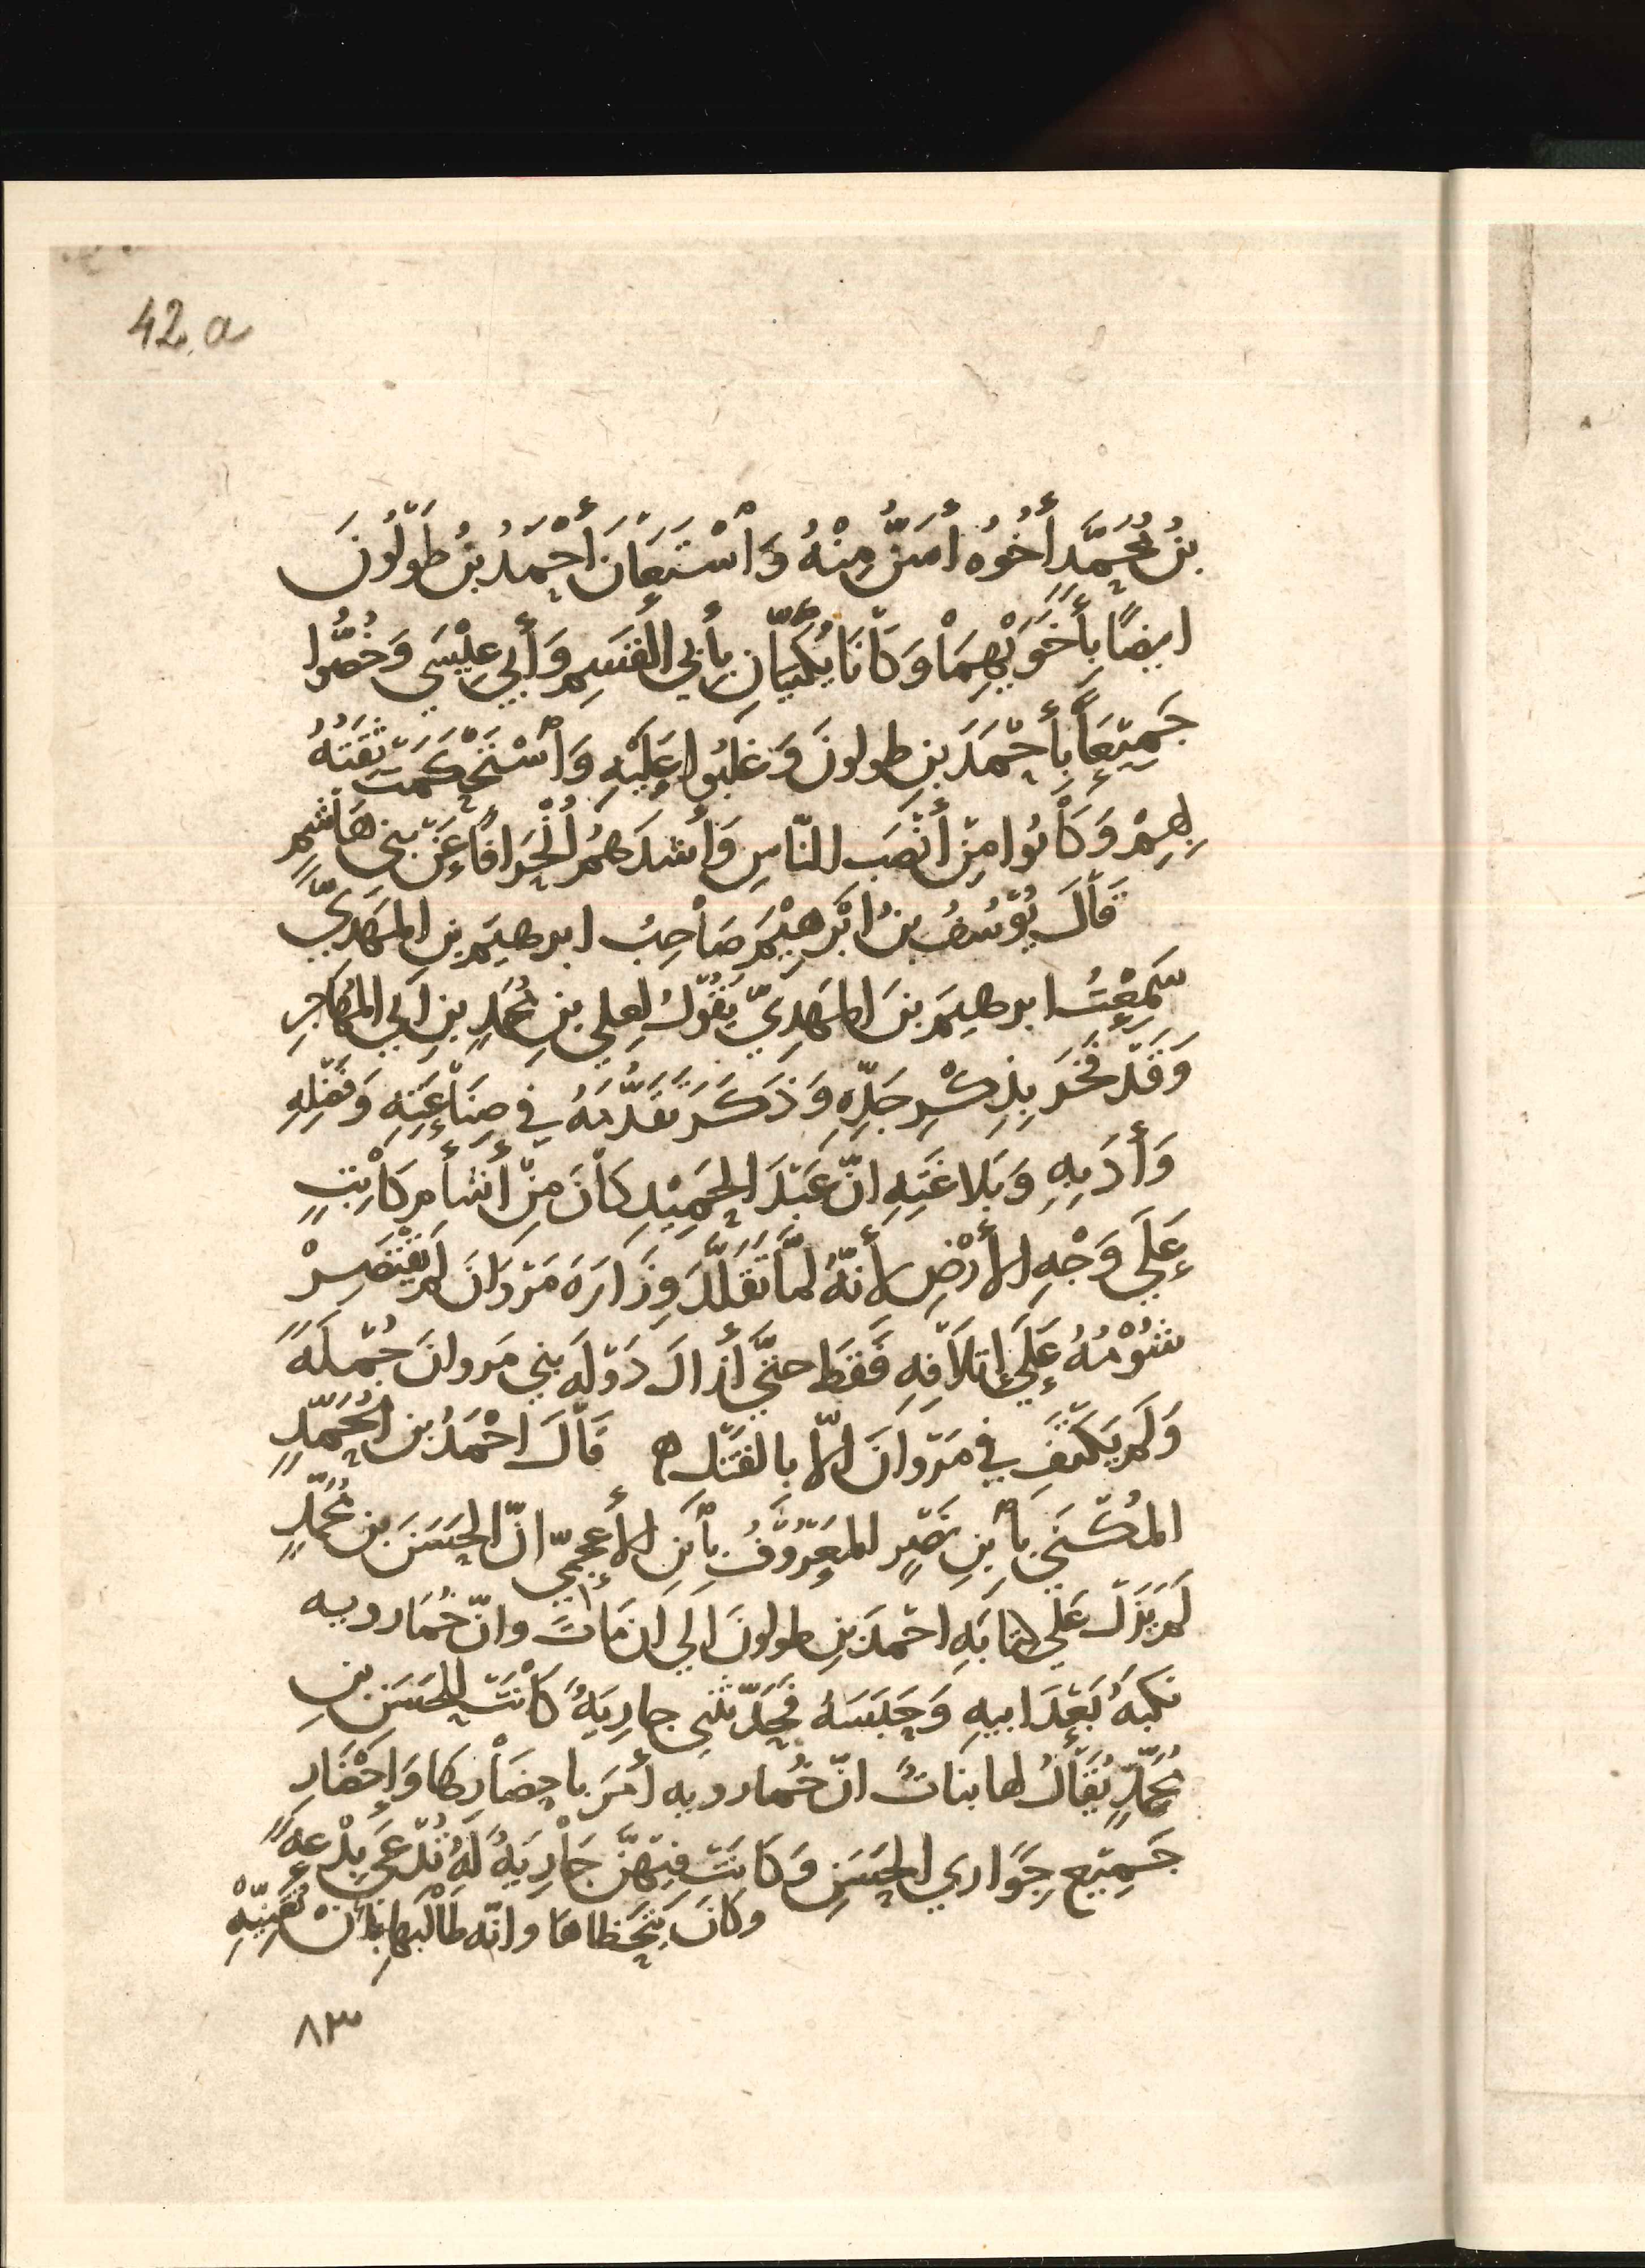 42.a
بنُ مُحَمَّدٍ أَخُوُه أسَنُّ مِنْهُ وَاسْتَعَانَ أَحْمَدُ بنُ طُولُونَ
ايضًا بِأَخَوَيْهِمَا وَكَانَا يُكَنَّيَانِ بِأَبي القسَمِ وَأَبِي عِيْسَي وَخَصُّوا
جَمِيْعَاً بِأَحْمَدَ بنِ طولونَ وَغَلَبُوا عَلَيْهِ وَاسْتَحْكَمَتْ ثِقَتَهُ
بِهِمْ وَكَانُوا مِنْ أَنْصَبِ النّاسِ وَأَشَدّهُمُ انْحِرَافًا عَنْ بَنِي هَاشِمٍ
قَالَ يُوْسُفُ بنُ ابْرهِيْمَ صَاحِبُ ابرهيمَ بنِ المَهدِيّ
سَمِعْتُ ابرهيمَ بنَ المَهدِيّ يَقُولُ لِعلي بنِ مُحَمدٍ بنِ ابي المُهَاجِرِ
وَقَدْ فَخَرَ بِذِكْرِ جَدّهِ وَذَكَرَ تَقَدُّمَهُ فِي صِنَاعَتِهِ وَفَضْلِهِ
وَأَدَبِهِ وَبَلاغَتِهِ انّ عَبْدَ الحَمِيْدِ كَانَ مِنْ أَشْأَمِ كَاتِبٍ
عَلَي وَجْهِ الأَرْضِ لأَنّهُ لمّا تَقَلَّدَ وِزَارَةَ مَرْوَانَ لَم يَقْتَصِرْ
شُوْمُهُ عَلَي إتلاَفِهِ فَقَط حتّي أَزالَ دَوْلَةَ بني مَروانَ جُمْلَةً
وَلَم يَكْتَفِ في مَرْوانَ الّا بالقَتْلِ ه قَالَ احْمَدُ بن مُحَمّدٍ
المُكْنَي بِأَبنِ نَصْرٍ المَعْرُوفُ بِأبنِ الأَعجميّ انّ الحَسَنَ بن مُحَمّدٍ
لَم يَزَل عَلَي كتابَةِ احْمدَ بنِ طولونَ الي ان مَاتَ وانّ خُمَارويه
نَكبَهُ بَعْدَ ابيهِ وَحَبَسَهُ فَحَدّثَتنِي جارِيَةٌ كَانَتْ للحَسَنِ بنِ
مُحَمّدٍ يُقَالُ لها بناتُ انّ خُمارويه أمَرَ باحضَارِها وَإحْضَارِ
جَمِيْعِ جِوَاري الحَسَنِ وَكَانَتْ فِيْهنّ جَارِيَةٌ لَهُ تُدْعَي بِدْعةً
وكَانَ يَتَحَظاهَا وانّه طَالَبَها بأَنْ تُغَنِيّهْ
٨٣